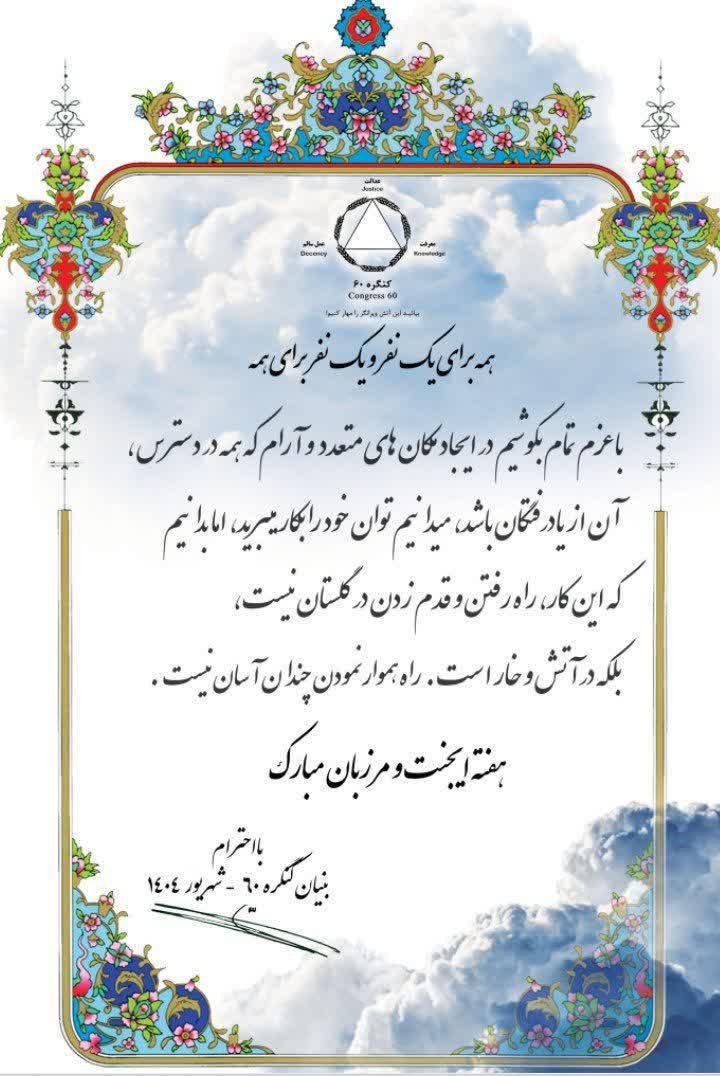 عدالت
Justice
معرفت
Knowledge
عمل سالم
Decency
کنگره ۶۰
Congress 60
بیائید این آتش ویرانگر را مهار کنیم!
همه برای یک نفر و یک نفر برای همه
با عزم تمام بکوشیم در ایجاد مکان های متعدد و آرام که همه در دسترس،
آن از یاد رفتگان باشد، میدانیم توان خود را بکار میبرید، اما بدانیم
که این کار، راه رفتن و قدم زدن در گلستان نیست،
بلکه در آتش و خار است. راه هموار نمودن چندان آسان نیست.
هفته ایجنت و مرزبان مبارک
با احترام
بنیان کنگره ۶۰ - شهریور ۱۴۰۴